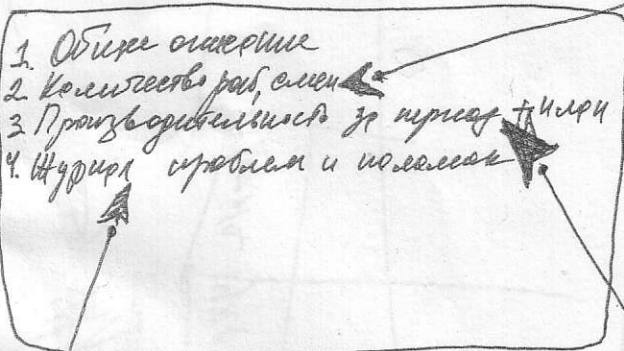 1. Общее описание
2. Количество раб, смен
3 Производительность за период +
4. Журнал проблем и поломок